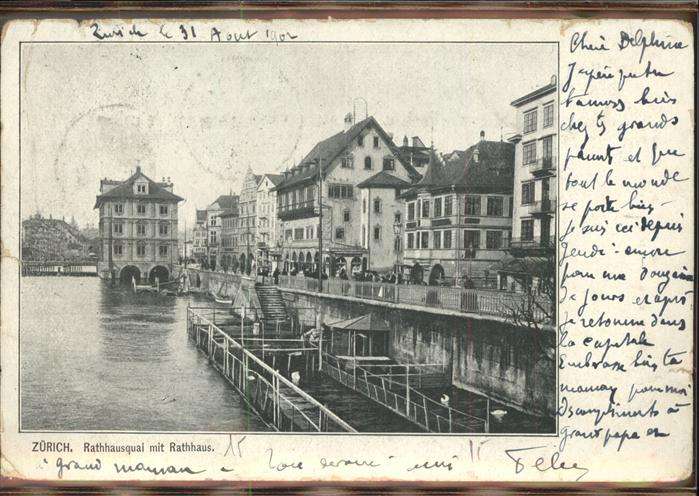 Zurich le 31 Aout 1902
Chère Delphine
J'espère que tu
t'amuses bien
chez ts grands
parents et que
tout le monde
se porte bien -
je suis ici depuis
Jeudi - encore
pour une douzaine
de jours et après
je retourne dans
la capitale
Embrasse bien ta
maman pour moi
Des compliments à
grand papa et
ZÜRICH. Rathhausquai mit Rathhaus.
à grand maman